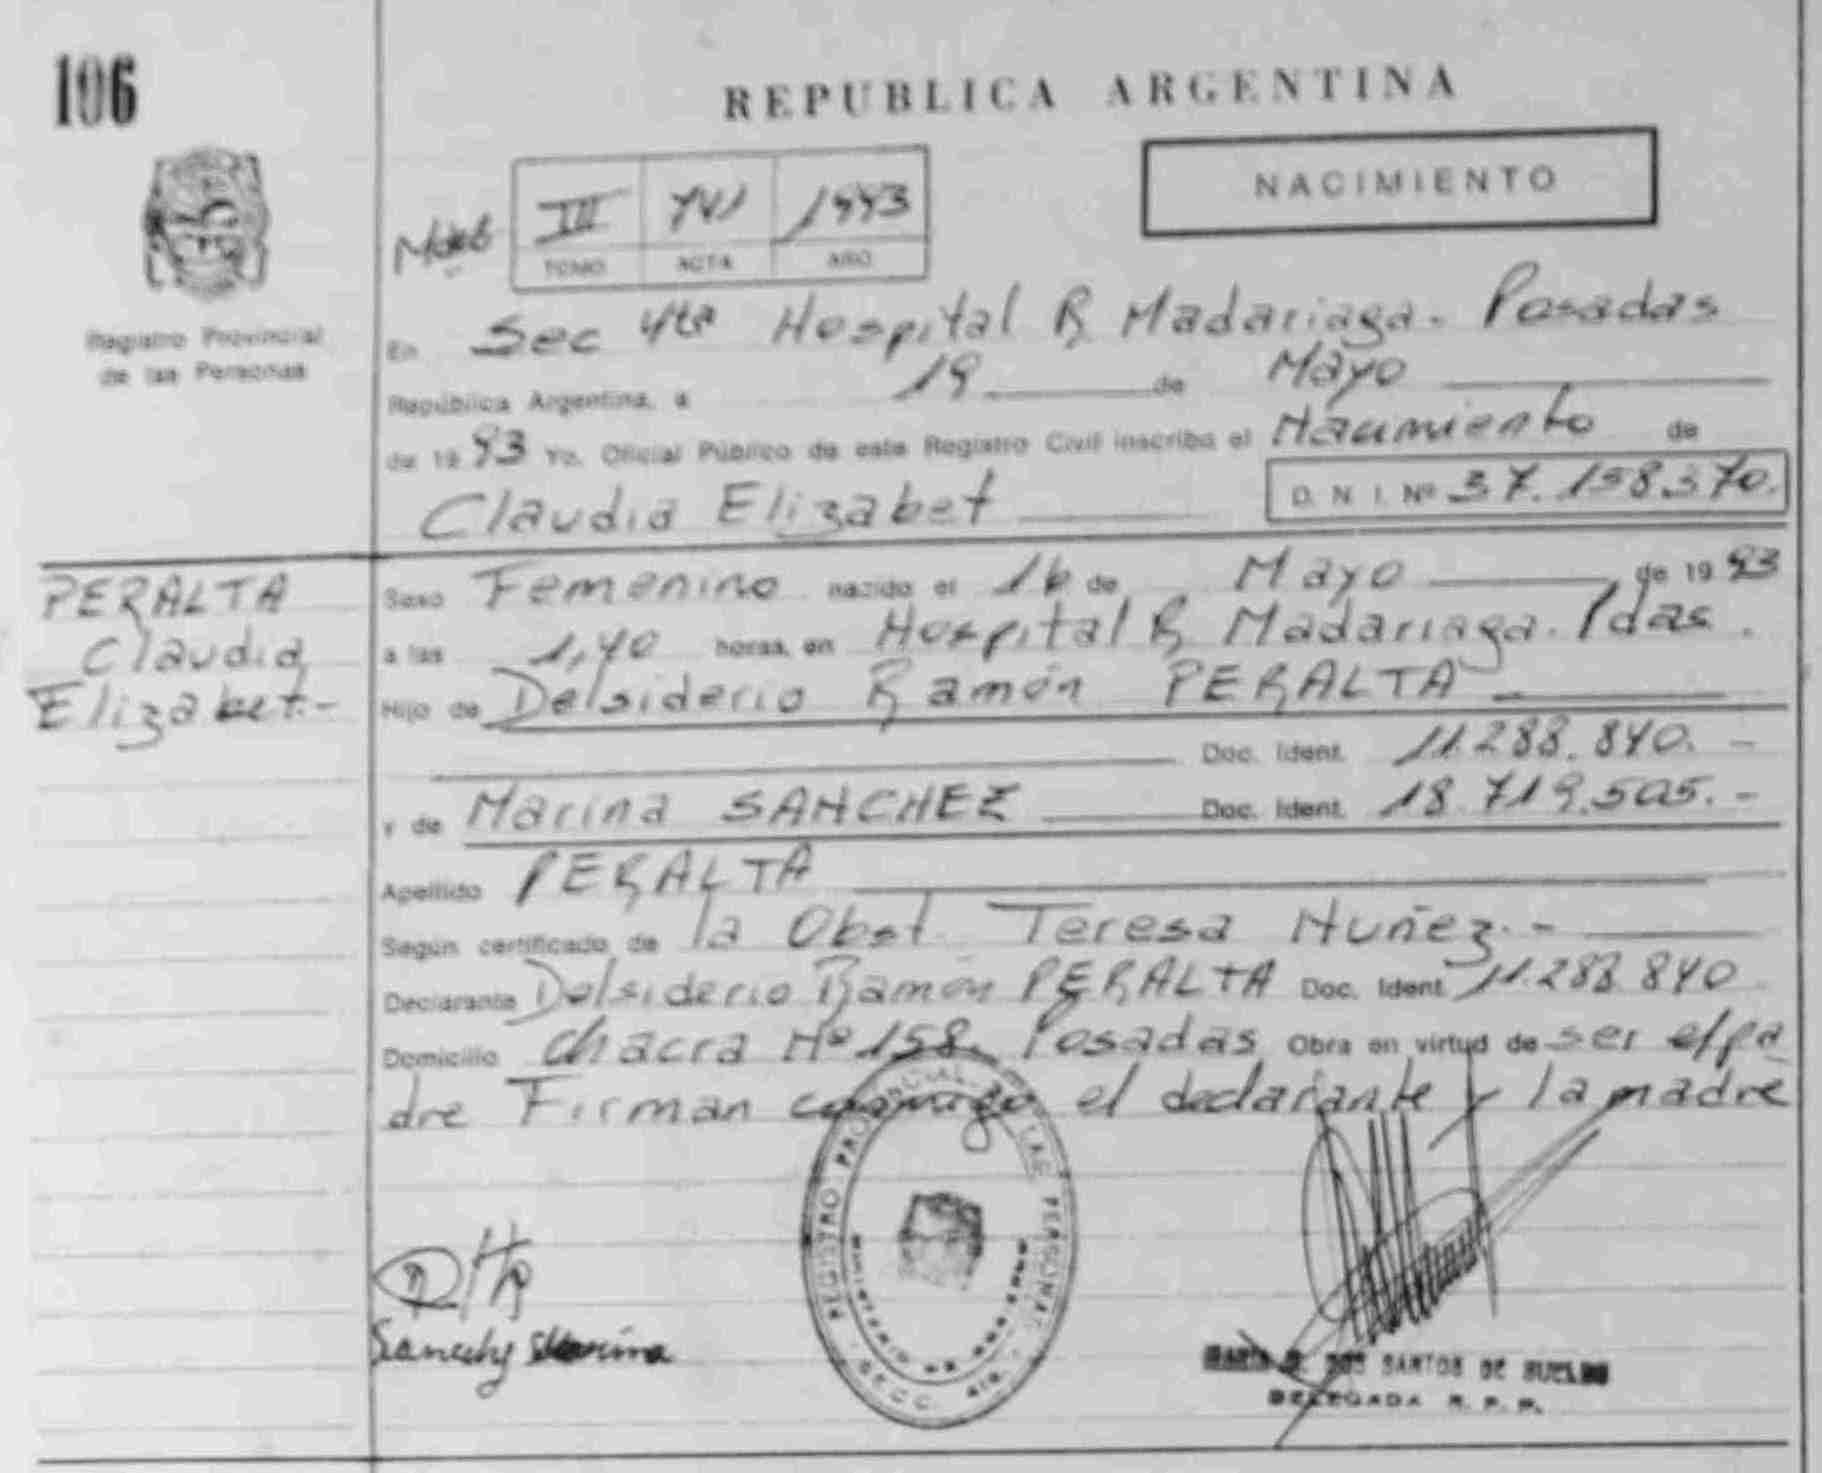 106
REPUBLICA ARGENTINA
NACIMIENTO
III 741 1993
TOMO ACTA AÑO
Registro Provincial
de las Personas
En Sec 4ta Hospital R Madariaga. Posadas
República Argentina, a 19 de Mayo
de 1993 Yo, Oficial Público de este Registro Civil inscribo el Nacimiento de
Claudia Elizabet D. N. I. Nº 37.158.370.
PERALTA
Claudia
Elizabet.-
Sexo Femenino nacido el 16 de Mayo de 1993
a las 1,40 horas, en Hospital R Madariaga. Pdas.
Hijo de Delsiderio Ramón PERALTA
Doc. Ident. 11.288.840. -
y de Marina SANCHEZ Doc. Ident. 18.719.505. -
Apellido PERALTA
Según certificado de la Obst. Teresa Nuñez. -
Declarante Delsiderio Ramón PERALTA Doc. Ident. 11.288.840
Domicilio Chacra Nº 158. Posadas Obra en virtud de ser el pa
dre Firman conmigo el declarante y la madre
REGISTRO PROVINCIAL DE LAS PERSONAS
Sanchez Marina
MARIA DOS SANTOS DE
DELEGADA R. P. P.